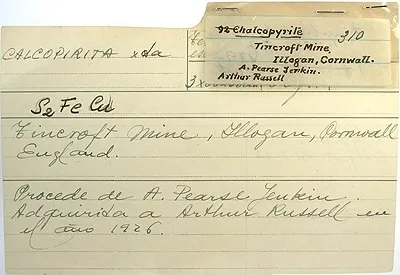 92 Chalcopyrite 310
Tincroft Mine,
Illogan, Cornwall.
A. Pearse Jenkin.
Arthur Russell
CALCOPIRITA xda
S2 Fe Cu
Tincroft Mine, Illogan, Cornwall
England.
Procede de A. Pearse Jenkin.
Adquirida a Arthur Russell en
el ano 1926.